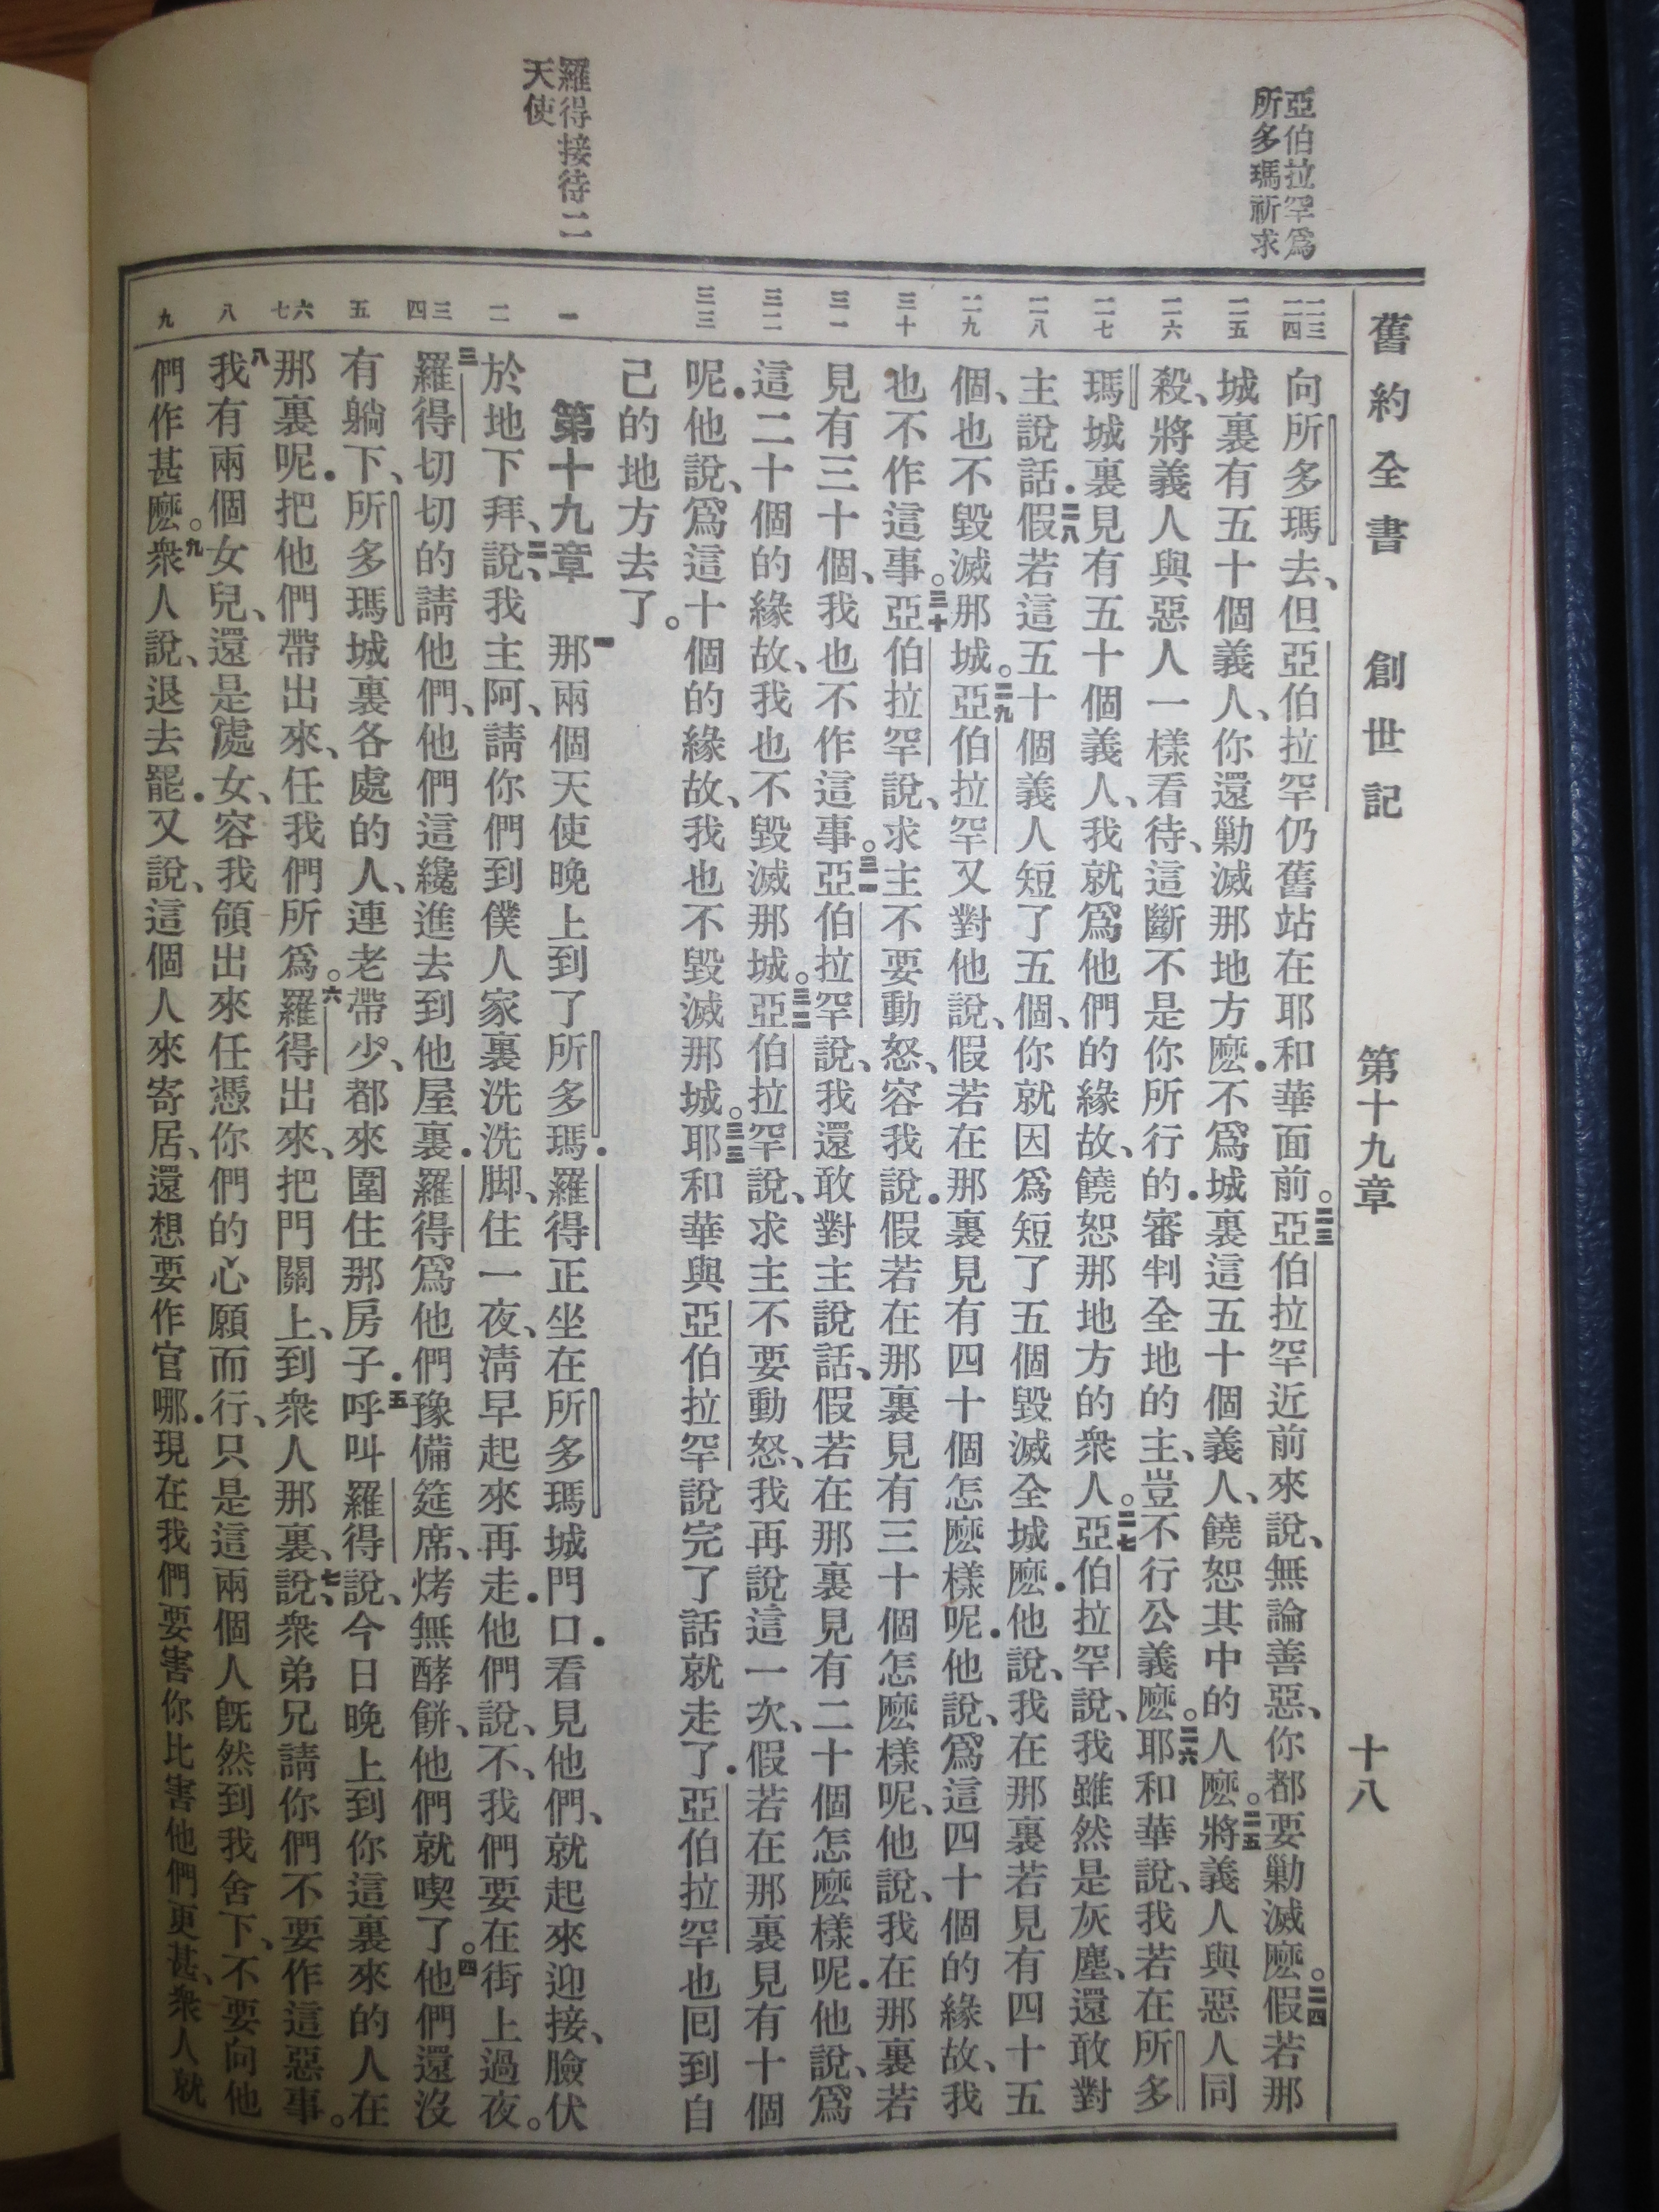 亞伯拉罕爲
所多瑪祈求
羅得接待二
天使
舊約全書 創世記 第十九章 十八
二三
二四
二五
二六
二七
二八
二九
三十
三一
三二
三三
一
二
三
四
五
六
七
八
九
向所多瑪去、但亞伯拉罕仍舊站在耶和華面前。二三亞伯拉罕近前來說、無論善惡、你都要勦滅麽。二四假若那
城裏有五十個義人、你還勦滅那地方麽．不爲城裏這五十個義人、饒恕其中的人麽。二五將義人與惡人同
殺、將義人與惡人一樣看待、這斷不是你所行的．審判全地的主、豈不行公義麽。二六耶和華說、我若在所多
瑪城裏見有五十個義人、我就爲他們的緣故、饒恕那地方的衆人。二七亞伯拉罕說、我雖然是灰塵、還敢對
主說話．二八假若這五十個義人短了五個、你就因爲短了五個毀滅全城麽．他說、我在那裏若見有四十五
個、也不毀滅那城。二九亞伯拉罕又對他說、假若在那裏見有四十個怎麽樣呢．他說、爲這四十個的緣故、我
也不作這事。三十亞伯拉罕說、求主不要動怒、容我說．假若在那裏見有三十個怎麽樣呢、他說、我在那裏若
見有三十個、我也不作這事。三一亞伯拉罕說、我還敢對主說話、假若在那裏見有二十個怎麽樣呢．他說、爲
這二十個的緣故、我也不毀滅那城。三二亞伯拉罕說、求主不要動怒、我再說這一次、假若在那裏見有十個
呢．他說、爲這十個的緣故、我也不毀滅那城。三三耶和華與亞伯拉罕說完了話就走了．亞伯拉罕也回到自
己的地方去了。
第十九章 一那兩個天使晚上到了所多瑪．羅得正坐在所多瑪城門口．看見他們、就起來迎接、臉伏
於地下拜、二說、我主阿、請你們到僕人家裏洗洗脚、住一夜、淸早起來再走．他們說、不、我們要在街上過夜。
三羅得切切的請他們、他們這纔進去到他屋裏．羅得爲他們豫備筵席、烤無酵餠、他們就喫了。四他們還沒
有躺下、所多瑪城裏各處的人、連老帶少、都來圍住那房子．五呼叫羅得說、今日晚上到你這裏來的人在
那裏呢．把他們帶出來、任我們所爲。六羅得出來、把門關上、到衆人那裏、七說、衆弟兄請你們不要作這惡事。
八我有兩個女兒、還是處女、容我領出來任憑你們的心願而行、只是這兩個人旣然到我舍下、不要向他
們作甚麽。九衆人說、退去罷．又說、這個人來寄居、還想要作官哪．現在我們要害你比害他們更甚、衆人就